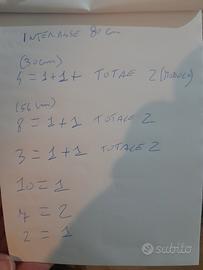 INTERASSE 80 cm
(30 cm)
5 = 1+1+ TOTALE 2 (MODULI)
(56 cm)
8 = 1+1 TOTALE 2
3 = 1+1 TOTALE 2
10 = 1
4 = 2
2 = 1
subito